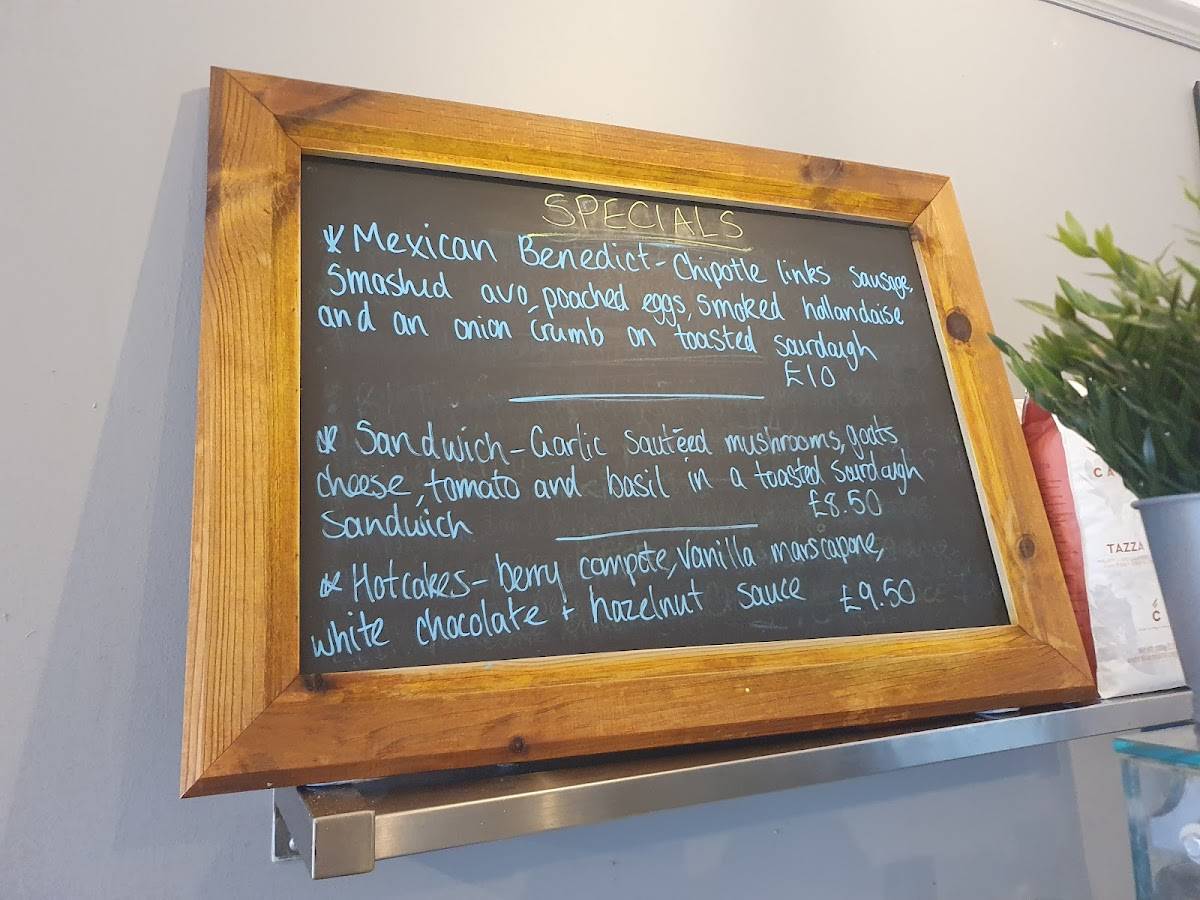 SPECIALS
* Mexican Benedict - Chipotle links sausage,
Smashed avo, poached eggs, smoked hollandaise
and an onion crumb on toasted sourdough
£10
* Sandwich - Garlic sautéed mushrooms, goats
cheese, tomato and basil in a toasted sourdough
Sandwich £8.50
* Hotcakes - berry compote, vanilla marscapone,
white chocolate + hazelnut sauce £9.50
TAZZA